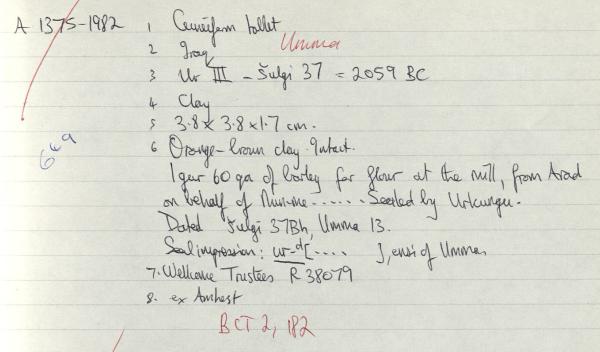 A 1375-1982 1 Cuneiform tablet
2 Iraq Umma
3 Ur III - Šulgi 37 = 2059 BC
4 Clay
5 3.8 x 3.8 x 1.7 cm.
6 Orange-brown clay. Intact.
1 gur 60 qa of barley for flour at the mill, from Arad
on behalf of ...... Sealed by
Dated Šulgi 37Bh, Umma 13.
Seal impression: ur-d[.... ], ensi of Umma.
7. Wellcome Trustees R 38079
8. ex Amherst
BCT 2, 182